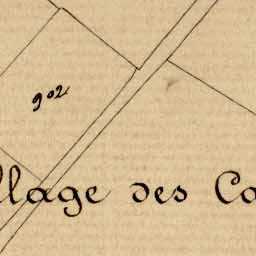 902
llage des Ca